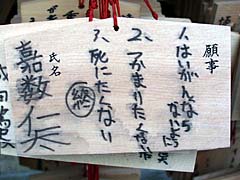 願事
1、はいがんなら
ないように
笑
2、つかまりたくない
3、死にたくない
終
氏名
嘉数仁